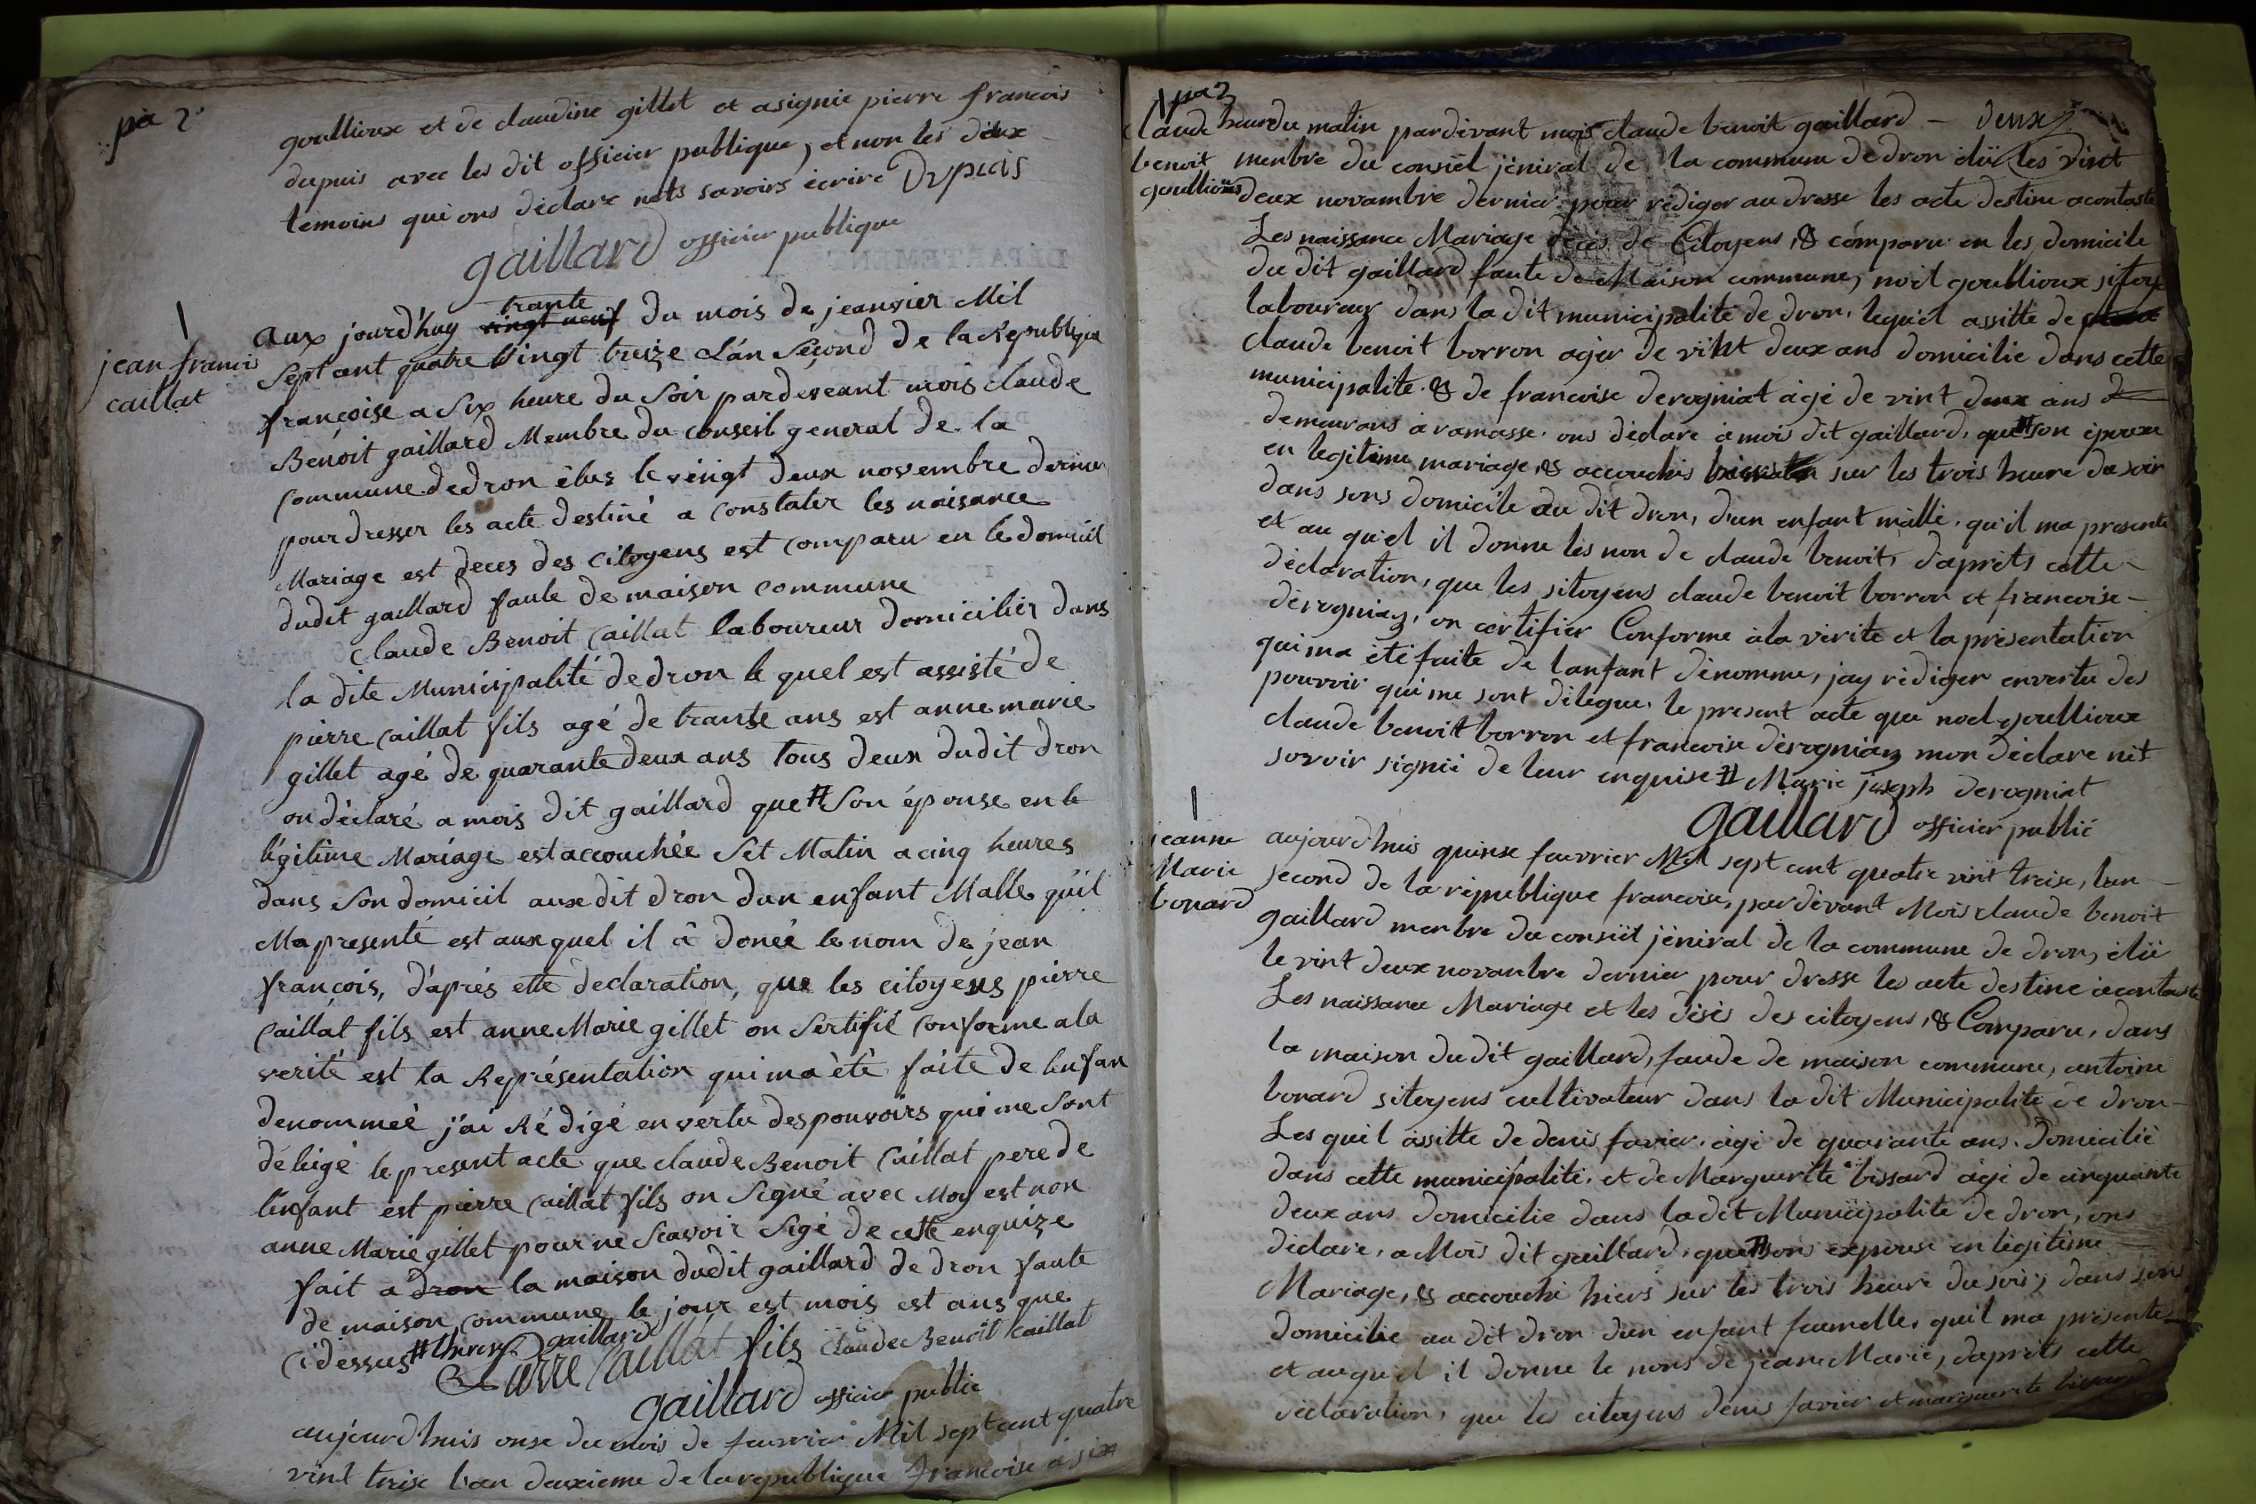 pa 2
goullioux et de claudine gillet et asignie pierre francois
dupuis avec les dit officier publique, et non les deux
temoins qui ons déclare nets savoirs écrire Dupuis
gaillard officier publique
jean francois
caillat
aux jourd'huy vingt neuf trante du mois de jeanvier Mil
Sept ant quatre vingt treize L'án Second de la Republique
françoise a Six heure du Soir pardeveant mois claude
Benoit gaillard Membre du conseil general de la
commune de dron èlus le vingt deux novembre dernier
pour dresser les acte destiné a constater les naisance
Mariage est deces des citoyens est comparu en le domicil
dudit gaillard faute de maison commune
claude Benoit Caillat laboureur domicilier dans
la dite Municipalité de dron le quel est assisté de
pierre Caillat fils agé de trante ans est anne marie
gillet agé de quarante deux ans tous deux dudit dron
on déclaré a mois dit gaillard que # Son éponse en le
légitime Mariage est accouchée Set Matin a cinq heures
dans Son domicil auxdit dron dun enfant Malle quil
Ma presenté est auxquel il â donéé le nom de jean
françois, d'aprés ette declaration, que les citoyens pierre
Caillat fils est anne Marie gillet on Sertifié conforme ala
verité est la Représentation qui ma ètè faite de lenfan
denommeé j'ai Ré digé en vertu des pouvoirs qui me Sont
délégé le present acte que claude Benoit Caillat pere de
lenfant est pierre Caillat fils on Signé avec Moy est non
anne Marie gillet pour ne Scavoir Sigé de cette enquize
fait a dron la maison dudit gaillard de dron faute
de maison commune le jour est mois est ans que
cidessus # gaillard
Piarre Caillat fils Claude Benoit Caillat
gaillard officier public
aujourd'huis onse du mois de feuvrier Mil sept cent quatre
vint treise l'an deuxieme de la republique francoise a six
pa 3
claude
benoit
goullioux
heur du matin pardevant mois claude benoit gaillard – deux
menbre du consiel jéniral de la commune de dron élü les vint
deux novambre dernier pour rédiger au dresse les acte destine acontaste
Les naissance Mariage décès de Citoyens, & comparu en les domicile
du dit gaillard faute de Maison commune, noël goullioux sitoy
laboureur dans la dit municipalité de dron, lequel assitté de
claude benoit borron ager de vint deux ans domicilie dans cette
municipalité & de francoise derogniat agé de vint deux ans
demeurans a ramasse ons déclare à mois dit gaillard, que # son épouxe
en legitime mariage, & accouchis sur les trois heure du soir
dans sons domicile au dit dron, dun enfant mâlle, qu'il ma presente
et au qu'el il donne les non de claude benoit, d'aprèts cette
déclaration, que les sitoyens claude benoit borron et francoise
derogniaz, on certifier Conforme à la vérite et la présentation
qui ma été faite de lanfant dénomme, jay rédiger envertu des
pouvoir qui me sont délégue, le present acte que noel goullioux
claude benoit borron et francoise dérogniaz mon déclare nét
sovoir signié de leur enquise # Marie joseph derogniat
gaillard officier public
jeanne
Marie
bonard
aujourd'huis quinse feuvrier Mil sept cent quatre vint treise, lan
second de la republique francoise, pardevant Mois claude benoit
gaillard menbre du consiel jéniral de la commune de dron, élü
le vint deux novanbre dernier pour dresse les acte destine acontaste
Les naissance Mariage et les désès des citoyens, & Comparu, dans
la maison dudit gaillard, faude de maison commune, antoine
bonard sitoyens cultivateur dans la dit Municipalité de dron
Lesquel assitte de denis favier agé de quarante ans, Domicilié
dans cette municipalité, et de Marguerite bissard agé de cinquante
deux ans domicilie dans la dit Municipalité de dron, ons
déclare, a Mois dit gaillard, que # sons expouse en legitime
Mariage, & accouché hiers sur les trois heure du soir, dans sons
domicilie au dit dron dun enfant feumelle, quil ma présente
et auquel il donne le nons de jeane Marie, d'aprèts cette
déclaration, que les citoyens denis favier et marguerite bissard